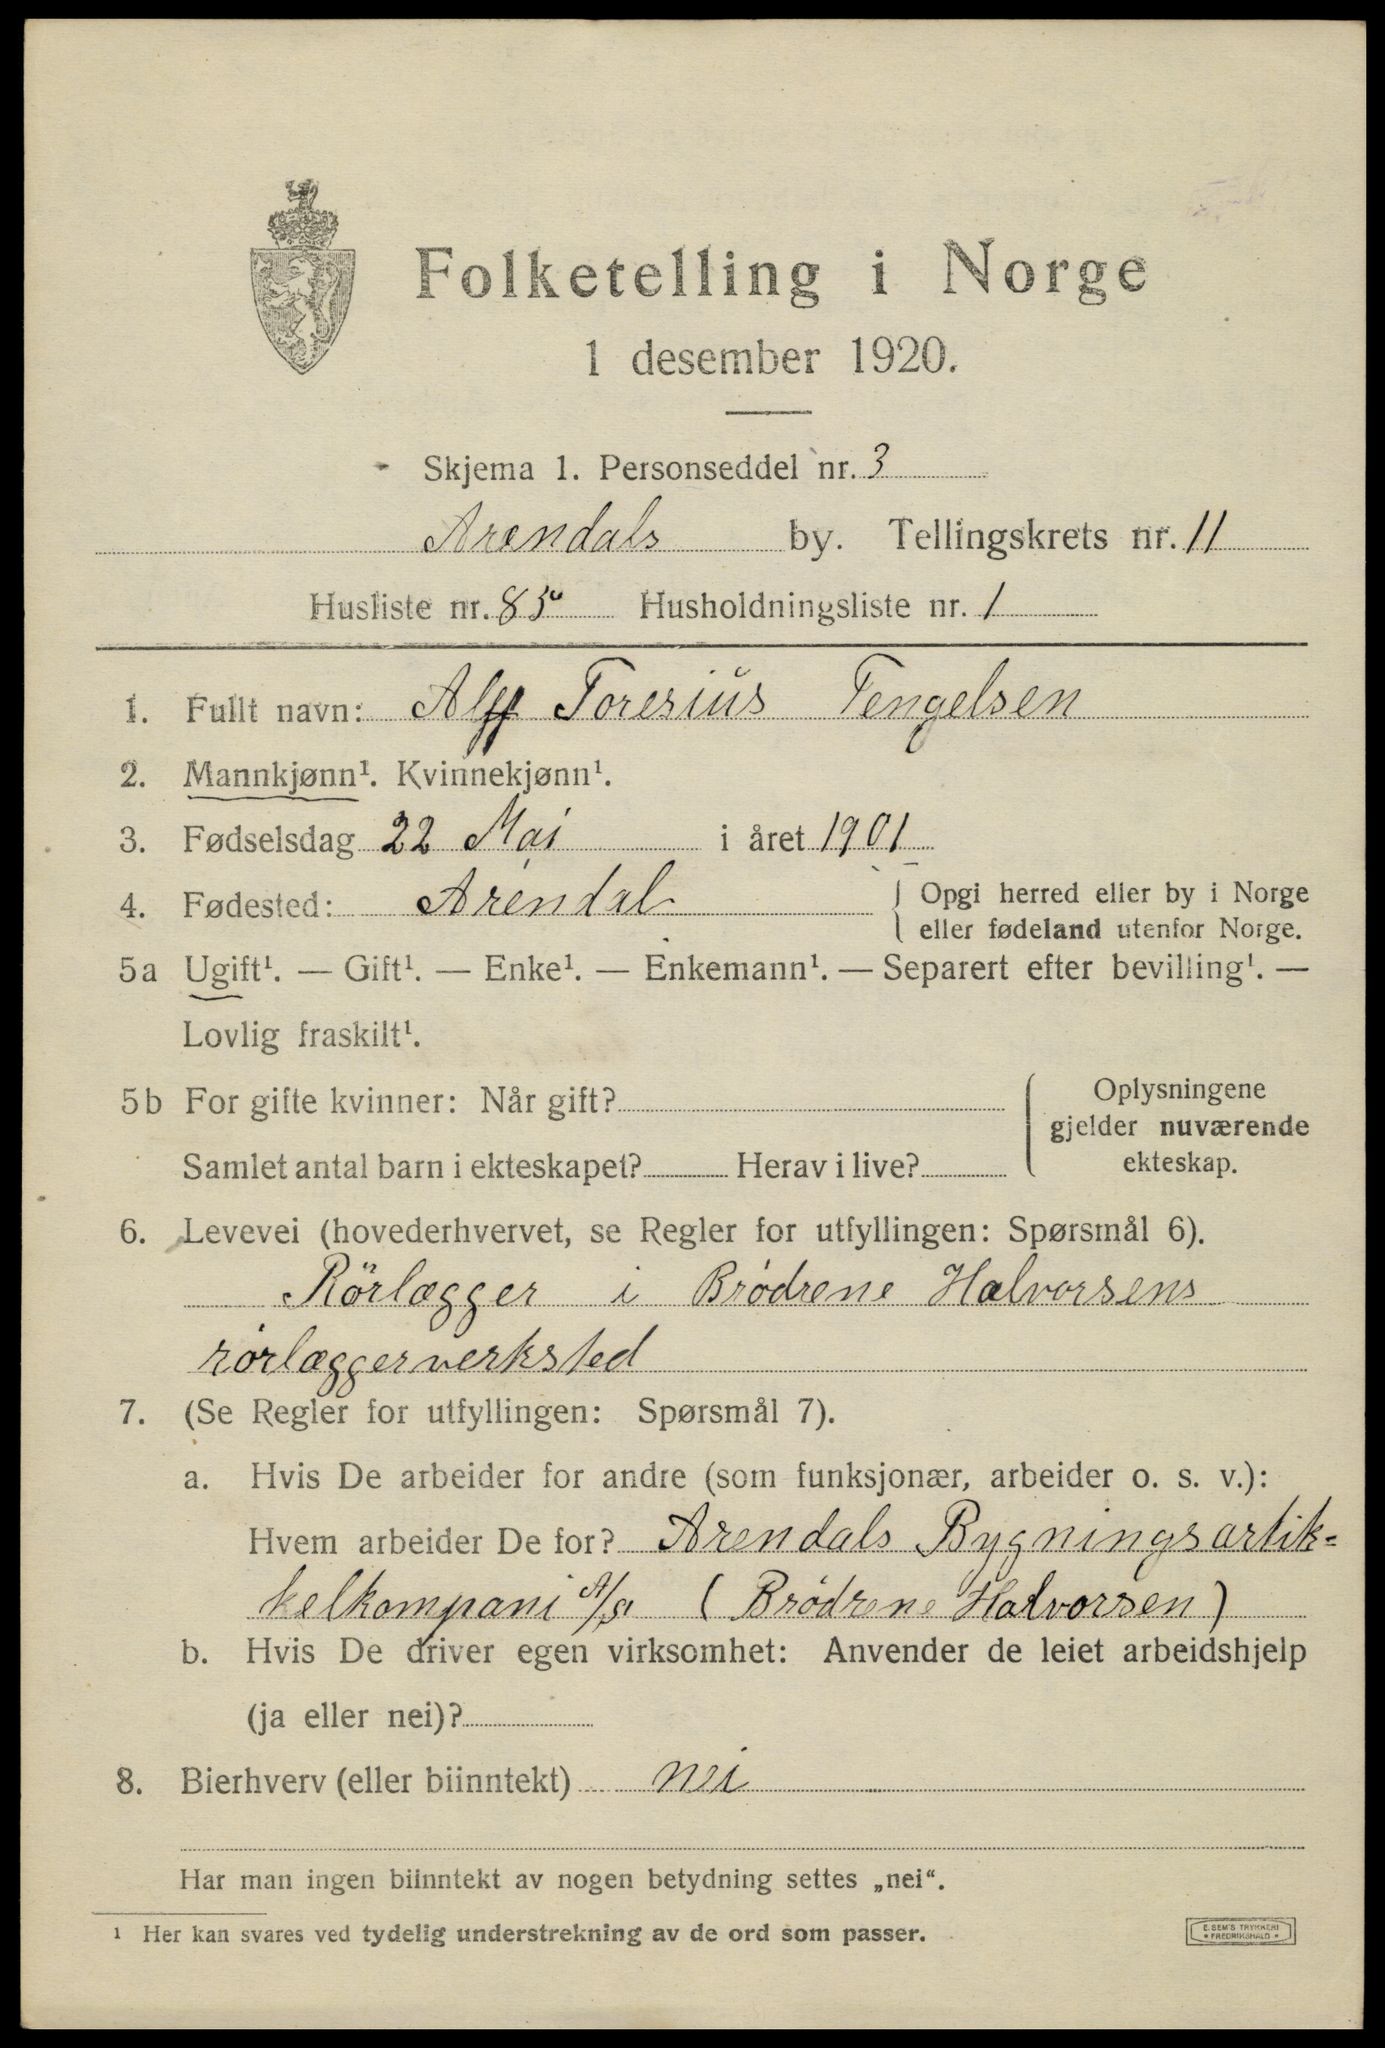 Folketelling i Norge
1 desember 1920.
Skjema 1. Personseddel nr. 3
Arendals by. Tellingskrets nr. 11
Husliste nr. 85 Husholdningsliste nr. 1
1. Fullt navn: Alf Toresius Tengelsen
2. Mannkjønn¹. Kvinnekjønn¹.
3. Fødselsdag 22 Mai i året 1901
4. Fødested: Arendal { Opgi herred eller by i Norge
eller fødeland utenfor Norge.
5a Ugift¹. — Gift¹. — Enke¹. — Enkemann¹. — Separert efter bevilling¹. —
Lovlig fraskilt¹.
5b For gifte kvinner: Når gift?
Samlet antal barn i ekteskapet? Herav i live?
{ Oplysningene
gjelder nuværende
ekteskap.
6. Levevei (hovederhvervet, se Regler for utfyllingen: Spørsmål 6).
Rörlægger i Brödrene Halvorsens
rörlæggerverksted
7. (Se Regler for utfyllingen: Spørsmål 7).
a. Hvis De arbeider for andre (som funksjonær, arbeider o. s. v.):
Hvem arbeider De for? Arendals Bygningsartik=
kelkompani A/S (Brödrene Halvorsen)
b. Hvis De driver egen virksomhet: Anvender de leiet arbeidshjelp
(ja eller nei)?
8. Bierhverv (eller biinntekt) nei
Har man ingen biinntekt av nogen betydning settes „nei“.
¹ Her kan svares ved tydelig understrekning av de ord som passer.
E. SEM'S TRYKKERI
* FREDRIKSHALD *